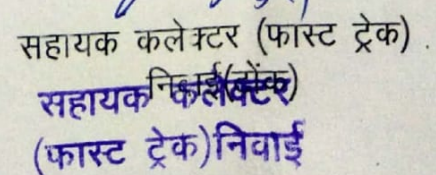 सहायक कलेक्टर (फास्ट ट्रेक)
निवाई(टोंक)
सहायक कलेक्टर
(फास्ट ट्रेक)निवाई